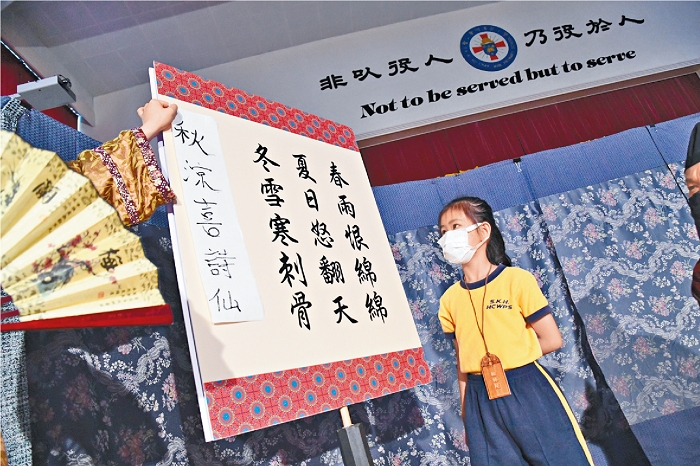 非以役人 乃役於人
Not to be served but to serve
春雨恨綿綿
夏日怒翻天
冬雪寒刺骨
秋涼喜詩仙
S.K.H.
HCWPS